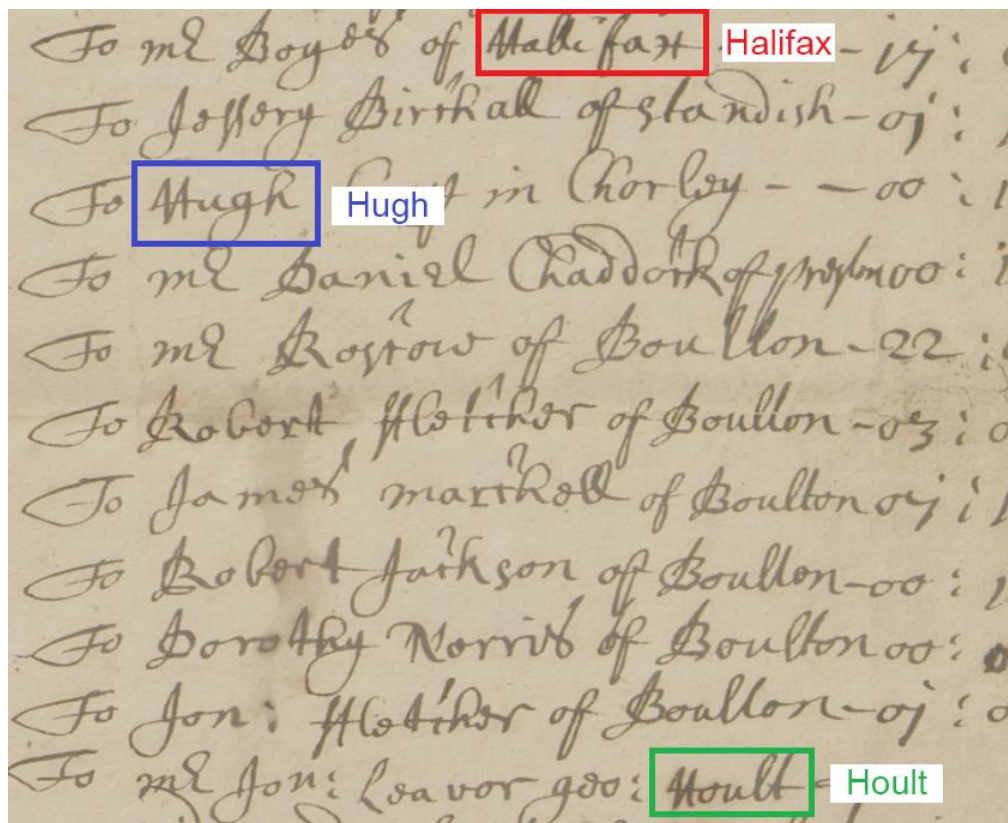 To mr Boyes of Hallifax Halifax - 17 :
To Jeffery Birchall of Standish - 01 :
To Hugh Hugh in Chorley - - 00 :
To mr Daniel Chaddock of preston 00 :
To mr Rostow of Boulton - 22 :
To Robert ffletcher of Boulton - 03 : 0
To James marckell of Boulton 01 :
To Robert Jackson of Boulton - 00 :
To Dorothy Norris of Boulton 00 :
To Jon: ffletcher of Boulton - 01 : 0
To mr Jon: Leavor geo: Hoult Hoult